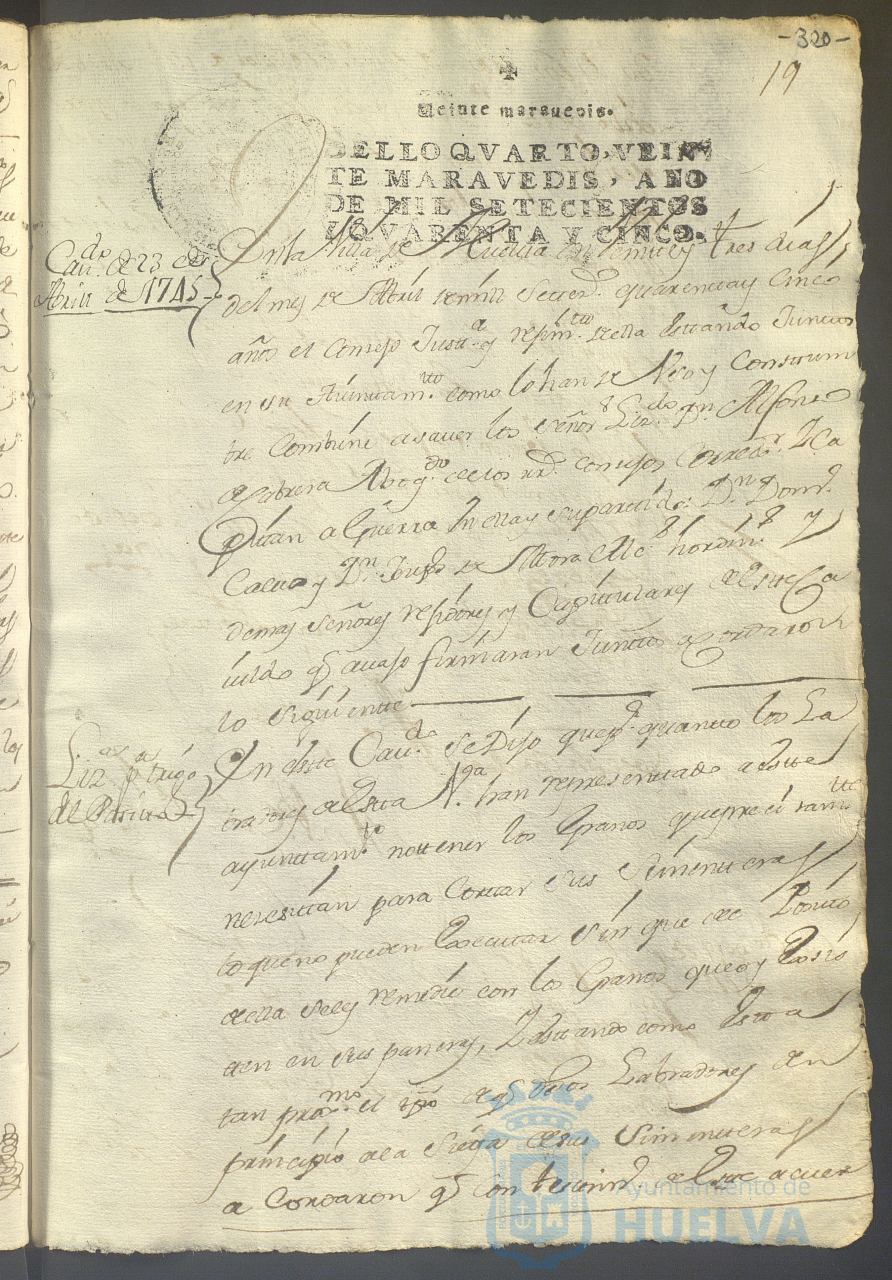 -320-
19
Veinte maravedis.
SELLO QVARTO, VEIN
TE MARAVEDIS, AÑO
DE MIL SETECIENTOS
Y QVARENTA Y CINCO.
Cav.do de 23 de
Abril de 1745
En la Villa de Huelva en Veinte y tres días
del mes de Abril de mill Settez.s quarenta y Cinco
años el Consejo Just.a y rexim.tto de ella estando Juntos
en su Aiuntam.tto como lo han de Uso y Costum
bre Combiene a saver los Señor.s Liz.do D.n Alfonso
Cabrera Abog.do de los R.s Consejos Corred.r y Ca
pitan a Guerra en ella y su partido: D.n Dom.o
Calvo y D.n Jup.e de Mora Alc.s hordin.s y
demas Señores rejidores y Capitulares de este Ca
vildo q.e avajo firmaran Juntos acordaron
lo Siguiente
Liz.as p.a trigo
del Posito
En este Cav.do Se Dijo que p.r quanto los La
bradores de esta V.a han representado a este
ayunttam.to no ttener los Granos que presisam.tte
nezesitan para Cortar sus Simentteras
lo que no pueden Executar Sin que del Posito
de ella Se les remedie con los Granos que oy Exsis
tten en sus paneras, Y estando como Esta
tan pro.mo el tpo de q.e d.hos Labradores den
principio a la Siega de sus Simentteras
acordaron q.e con testim.o de este acuer
Ayuntamiento de
HUELVA